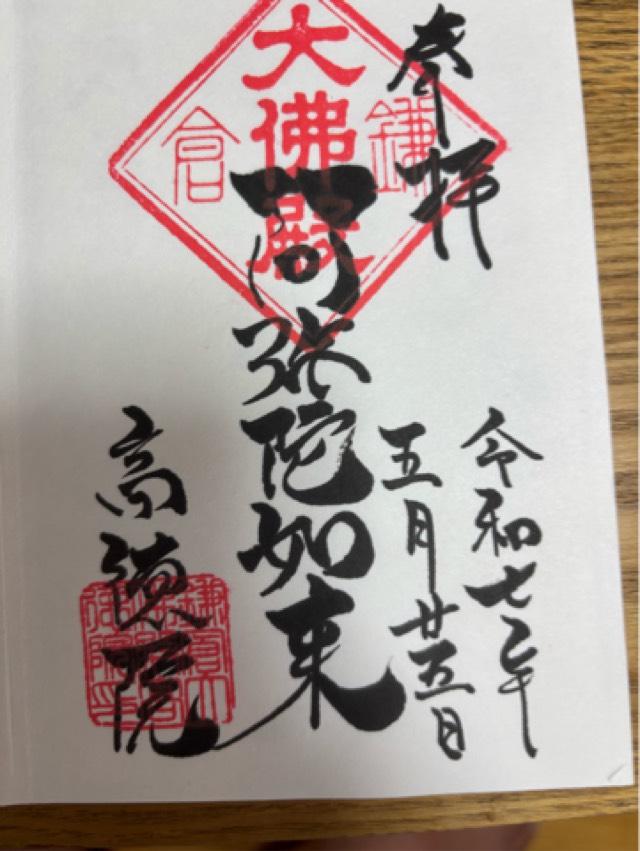 奉拝
令和七年
五月廿五日
鎌倉
大佛殿
阿弥陀如来
高徳院